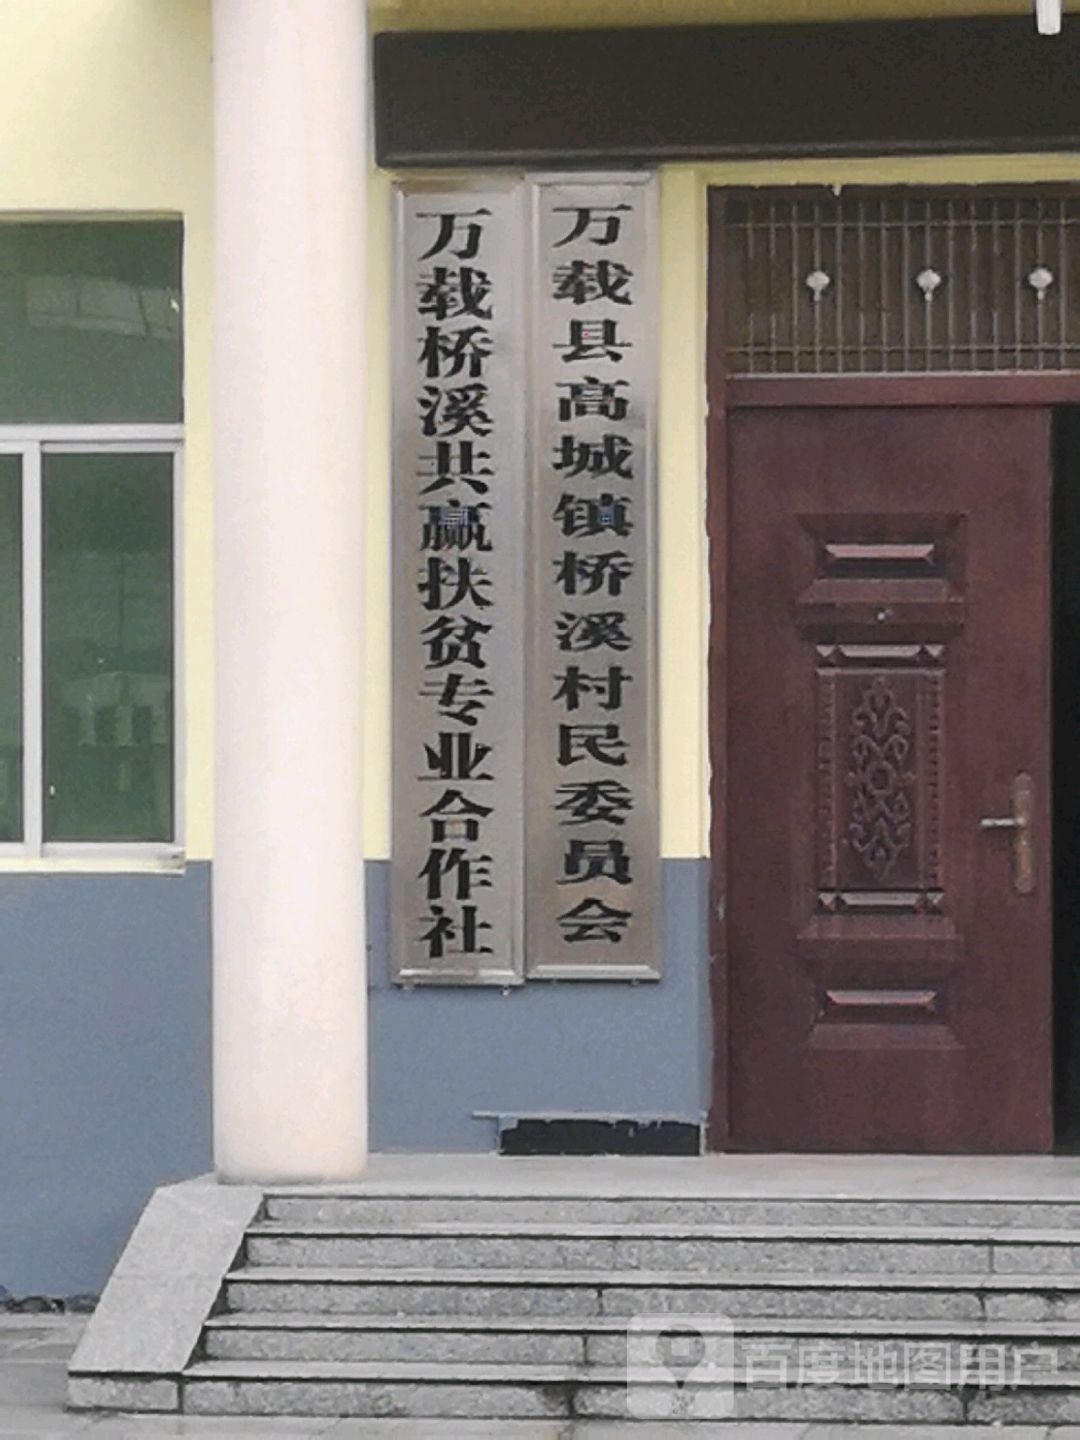 万载县高城镇桥溪村民委员会
万载桥溪共赢扶贫专业合作社
百度地图用户